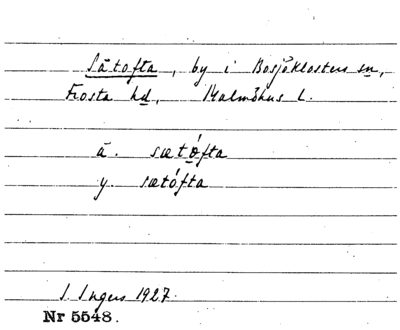 Sätofta, by i Bosjöklosters sn,
Frosta hd, Malmöhus l.
ä. sætófta
y. sætófta
I. Ingers 1927.
Nr 5548.